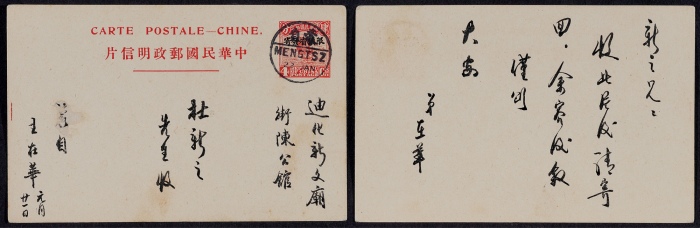 CARTE POSTALE—CHINE.
中華民國郵政明信片
MENGTSZ
迪化新文廟
街陳公館
杜新之
先生收
自
王在華
元月
廿一日
新之兄：
收此片後請寄
四，余容後敘
謹此
大安
弟在華